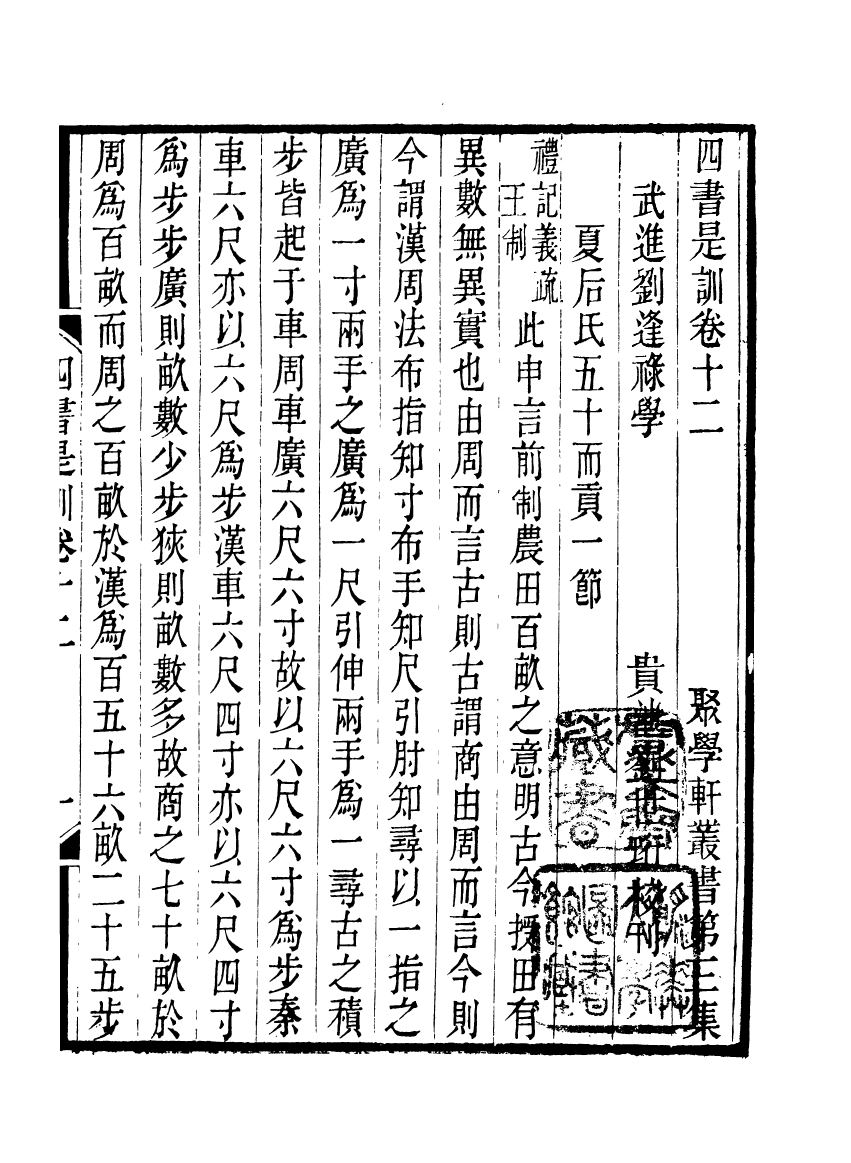 四書是訓卷十二
聚學軒叢書第三集
武進劉逢祿學
貴池劉世珩校刊
夏后氏五十而貢一節
禮記義疏
王制
此申言前制農田百畝之意明古今授田有
異數無異實也由周而言古則古謂商由周而言今則
今謂漢周法布指知寸布手知尺引肘知尋以一指之
廣爲一寸兩手之廣爲一尺引伸兩手爲一尋古之積
步皆起于車周車廣六尺六寸故以六尺六寸爲步秦
車六尺亦以六尺爲步漢車六尺四寸亦以六尺四寸
爲步步廣則畝數少步狹則畝數多故商之七十畝於
周爲百畝而周之百畝於漢爲百五十六畝二十五步
四書是訓卷十二
一
藏書